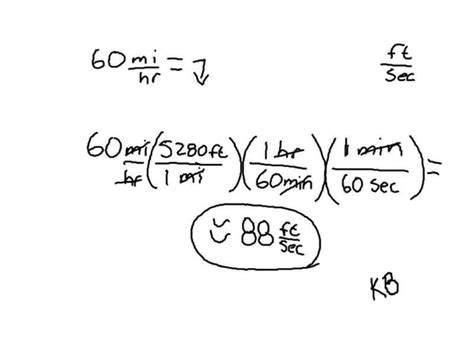 60 mi/hr = ? ft/sec
60 mi/hr (5280ft/1 mi)(1 hr/60min)(1 min/60 sec) =
88 ft/sec
KB